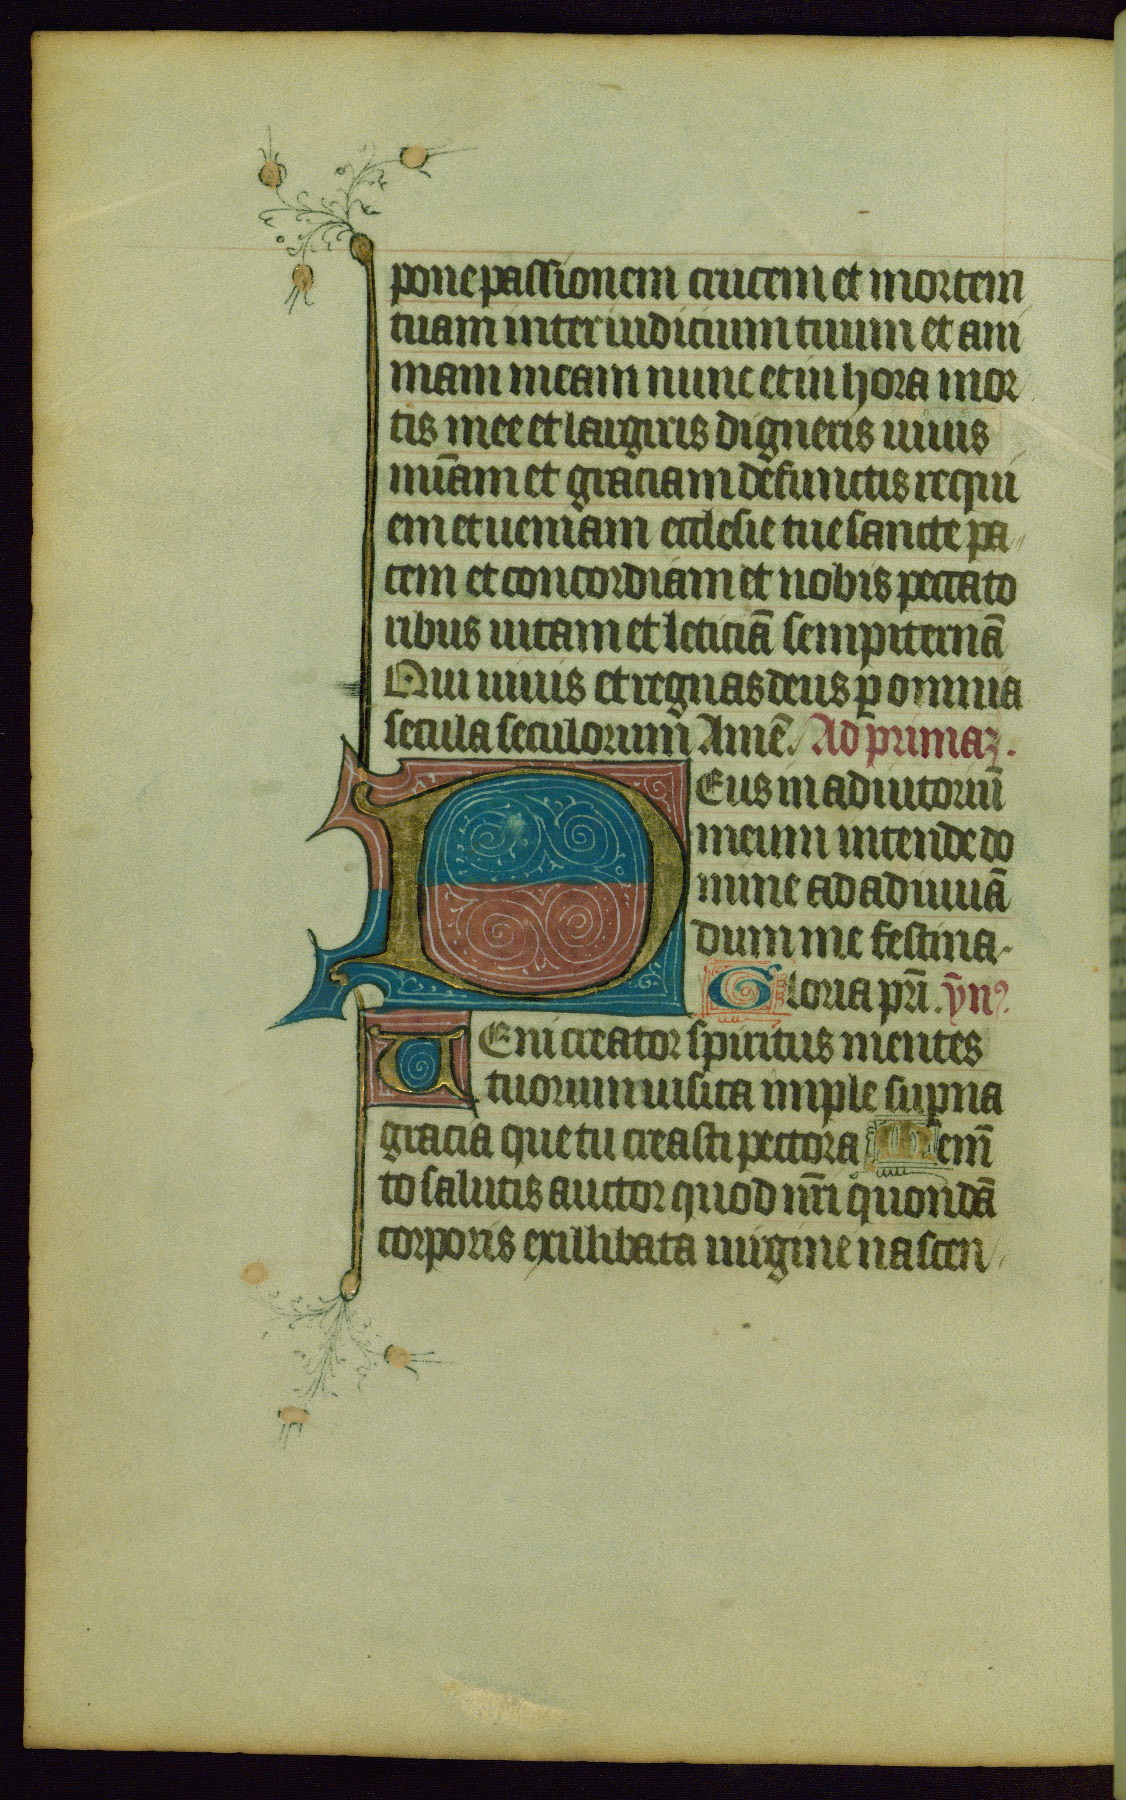 pone passionem crucem et mortem
tuam inter iudicium tuum et ani
mam meam nunc et in hora mor
tis mee et largiris digneris uiuis
miam et graciam defunctis requi
em et ueniam ecclesie tue sancte pa
cem et concordiam et nobis peccato
ribus uitam et leticiā sempiternā
Qui uiuis et regnas deus ꝑ omnia
secula seculorum Amē. Ad primaꝫ.
DEus in adiutoriū
meum intende do
mine ad adiuuā
dum me festina.
Gloria pr̄i. ȳnꝰ.
UEni creator spiritus mentes
tuorum uisita imple suꝑna
gracia que tu creasti pectora Mem̄
to salutis auctor quod nr̄i quondā
corporis ex illibata uirgine nascen